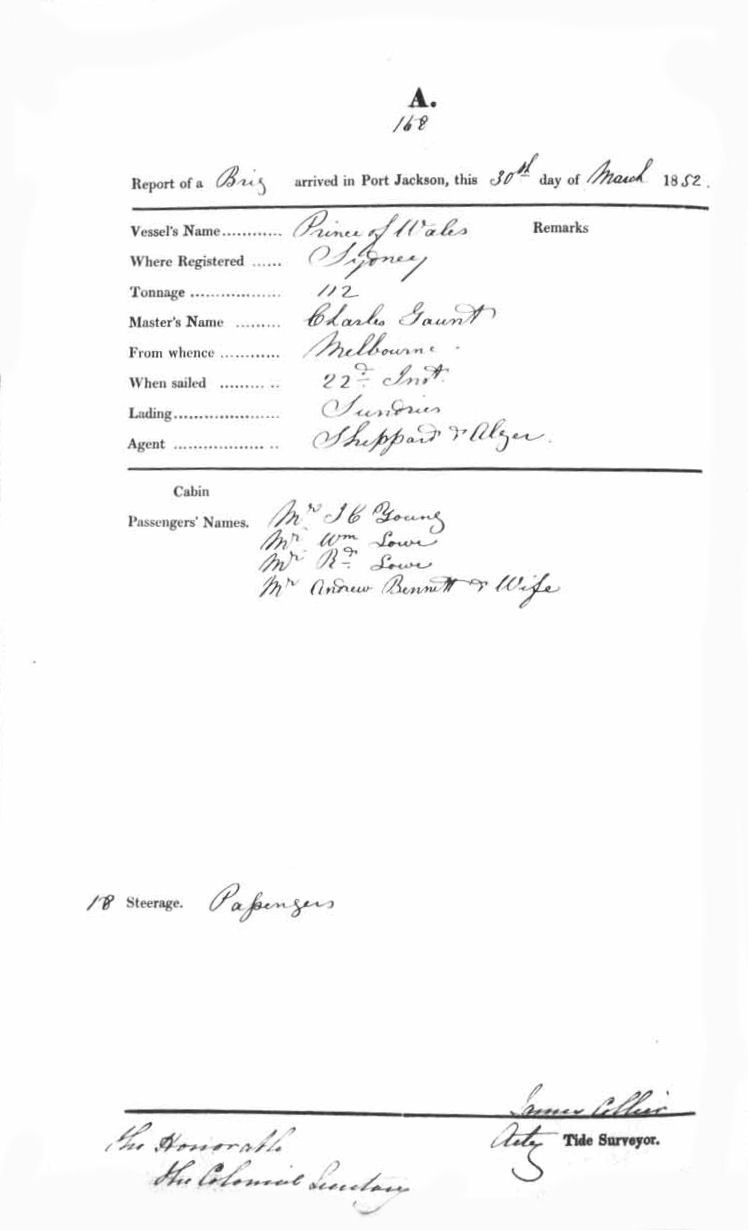 A.
168
Report of a Brig arrived in Port Jackson, this 30th day of March 1852.
Vessel's Name............ Prince of Wales Remarks
Where Registered ...... Sydney
Tonnage .................. 112
Master's Name ......... Charles Gaunt
From whence ............ Melbourne
When sailed ......... .. 22d Inst.
Lading..................... Sundries
Agent .................. .. Sheppard & Alger.
Cabin
Passengers' Names. Mr J C Young
Mr Wm Lowe
Mr Rd Lowe
Mr Andrew Bennett & Wife
18 Steerage. Passengers
James Collier
Actg Tide Surveyor.
The Honorable
The Colonial Secretary